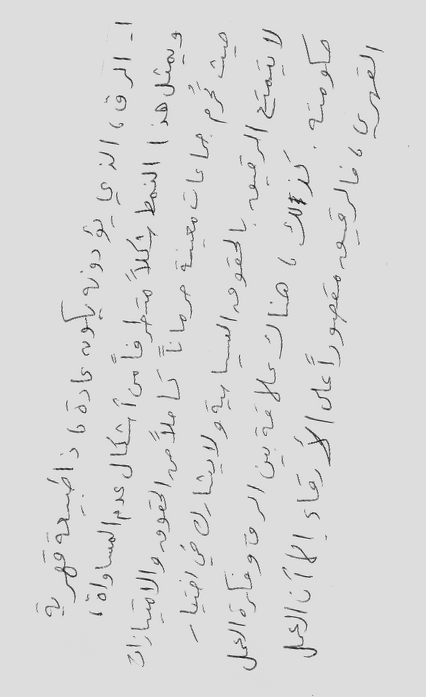 ١- الرق، الذي يؤدونه يكون عادة، ذا طبيعة قهرية
ويمثل هذا النمط شكلاً متطرفاً من أشكال عدم المساواة،
حيث تُحرم جماعات معينة حرماناً كاملاً من الحقوق والامتيازات
لا يتمتع الرقيق بالحقوق السياسية ولا يشارك في اختيار
حكومته. كذلك، هناك علاقة بين الرق وفكرة العمل
القهري، فالرقيق مقصوراً على الأرقاء. إلا أن العمل